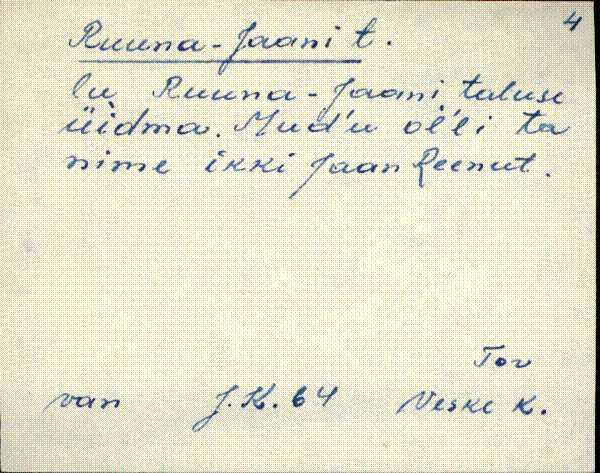 4
Ruuna-Jaani t.
lu Ruuna-Jaani taluse
üidma. Mud'u ol'l'i ta
nime ikki Jaan Reenut.
Tov
van J.K. 64 Veske K.